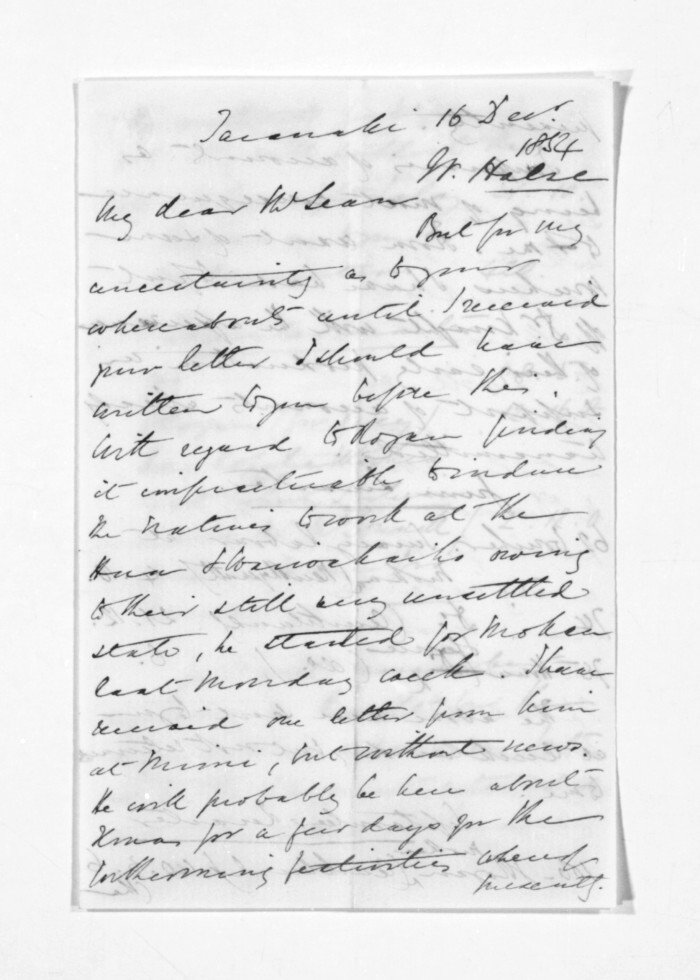 Taranaki 16 Decr.
1854
W. Halse
My dear McLean
But for my
uncertainty as to your
whereabouts until I received
your letter I should have
written to you before this.
With regard to Rogan finding
it impracticable to induce
the natives to work at the
Hua & Waiwakaiho owing
to their still very unsettled
state, he started for Mokau
last Monday week. I have
received one letter from him
at Mimi, but without news.
He will probably be here about
Xmas for a few days for the
forthcoming festivities whereof
presently.